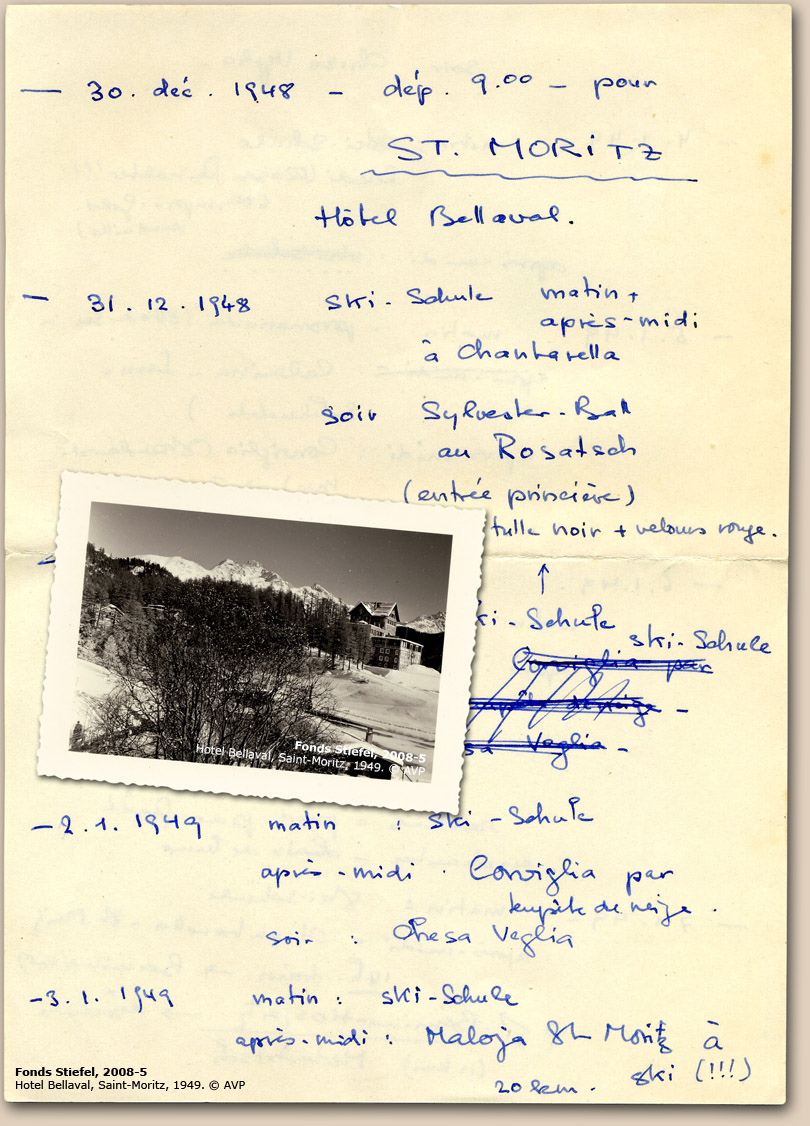 — 30. déc. 1948 – dép. 9.00 – pour
ST. MORITZ
Hôtel Bellaval.
— 31.12.1948 Ski-Schule matin +
après-midi
à Chantarella
soir Sylvester-Ball
au Rosatsch
(entrée princière)
tulle noir + velours rouge.
↑
ki-Schule
ski-Schule
Corviglia par
de neige –
sa Veglia –
Fonds Stiefel, 2008-5
Hotel Bellaval, Saint-Moritz, 1949. © AVP
— 2.1.1949 matin : Ski-Schule
après-midi : Corviglia par
tempête de neige.
soir : Chesa Veglia
– 3.1.1949 matin : ski-Schule
après-midi : Maloja St Moritz à
20 km. ski (!!!)
Fonds Stiefel, 2008-5
Hotel Bellaval, Saint-Moritz, 1949. © AVP